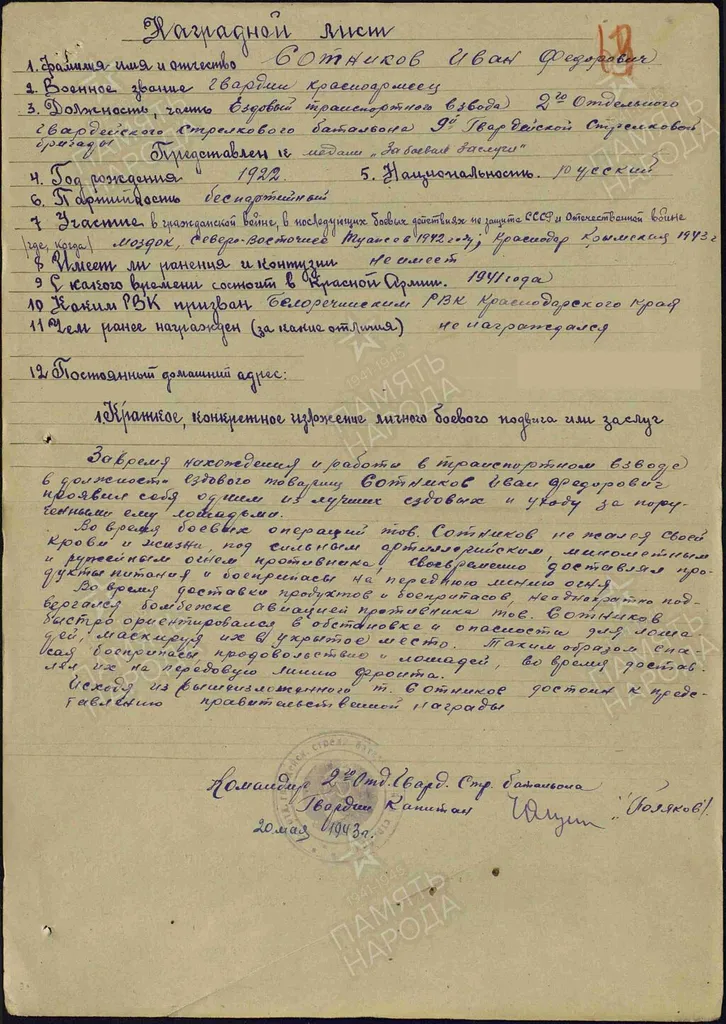 Наградной лист
63
1. Фамилия имя и отчество Сотников Иван Федорович
2. Военное звание Гвардии красноармеец
3. Должность, часть Ездовый транспортного взвода 2го Отдельного
Гвардейского стрелкового батальона 9й Гвардейской Стрелковой
бригады
Представлен к медали „За боевые заслуги"
4. Год рождения 1922 5. Национальность. русский
6. Партийность беспартийный
7 Участие в гражданской войне, в последующих боевых действиях по защите СССР и Отечественной войне
(где, когда) Моздок, Северо-Восточнее Туапсе в 1942 году, Краснодар Крымская 1943 г
8 Имеет ли ранения и контузии не имеет
9 С какого времени состоит в Красной Армии. 1941 года
10 Каким РВК призван Белореченским РВК Краснодарского края
11 Чем ранее награжден (за какие отличия) не награждался
12 Постоянный домашний адрес:
1. Краткое, конкретное изложение личного боевого подвига или заслуг
За время нахождения и работы в транспортном взводе
в должности ездового товарищ Сотников Иван Федорович
проявил себя одним из лучших ездовых и уходу за пору-
ченными ему лошадьми.
Во время боевых операций тов. Сотников не жалея своей
крови и жизни, под сильным артиллерийским, минометным
и ружейным огнем противника своевременно доставлял про-
дукты питания и боеприпасы на переднюю линию огня.
Во время доставки продуктов и боеприпасов, неоднократно под-
вергался бомбежке авиацией противника тов. Сотников
быстро ориентировался в обстановке и опасности для лоша-
дей, маскируя их в укрытое место. Таким образом спа-
сая боеприпасы продовольствию и лошадей, во время достав-
лял их на передовую линию фронта.
Исходя из вышеизложенного т. Сотников достоин к предс-
тавлению правительственной награды
Командир 2го Отд. Гвард. Стр. батальона
Гвардии Капитан /Поляков/.
20 мая 1943 г.
ПАМЯТЬ
НАРОДА
1941-1945
ПАМЯТЬ
НАРОДА
1941-1945
ПАМЯТЬ
НАРОДА